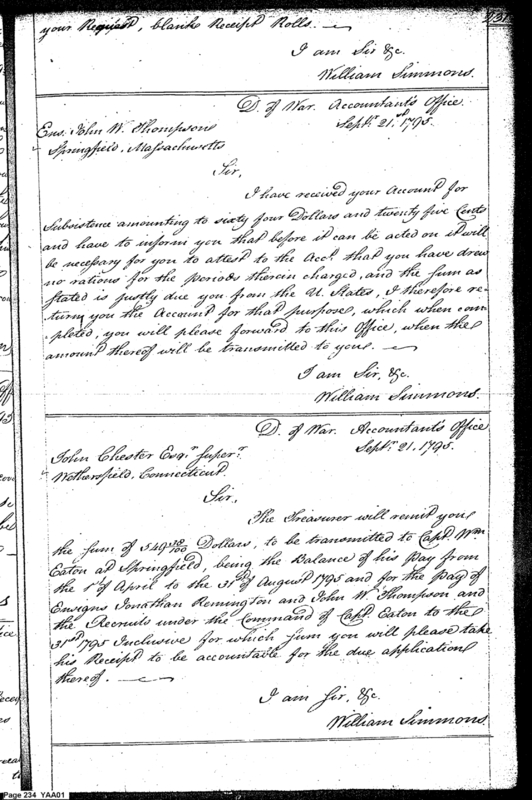 231
your Request, blank Receipt Rolls.
I am Sir &c.
William Simmons.
D. of War. Accountant's Office
Septr. 21st 1795.
Ens. John W. Thompson
Springfield, Massachusetts
Sir,
I have received your Account for
Subsistence amounting to sixty four Dollars and twenty five Cents
and have to inform you that before it can be acted on it will
be necessary for you to attest to the Acct. that you have drew
no rations for the periods therein charged, and the sum as
stated is justly due you from the U. States, I therefore re-
turn you the Account for that purpose, which when com
pleted, you will please forward to this Office, when the
amount thereof will be transmitted to you.
I am Sir, &c.
William Simmons.
D. of War. Accountant's Office
Septr. 21, 1795.
John Chester Esqr. Superr.
Wethersfield, Connecticut
Sir,
The Treasurer will remit you
the Sum of 549 Dollars, to be transmitted to Capt. Wm
Eaton at Springfield, being the Balance of his Pay from
the 1st of April to the 31st of August 1795 and for the Pay of
Ensigns Jonathan Remington and John W. Thompson and
the Recruits under the Command of Capt. Eaton to the
31st 1795 Inclusive for which sum you will please take
his Receipt to be accountable for the due application
thereof.
I am Sir, &c.
William Simmons.
Page 234 YAA01